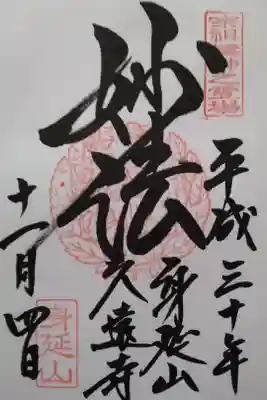 平成三十年
妙法
身延山
久遠寺
十一月四日
身延山